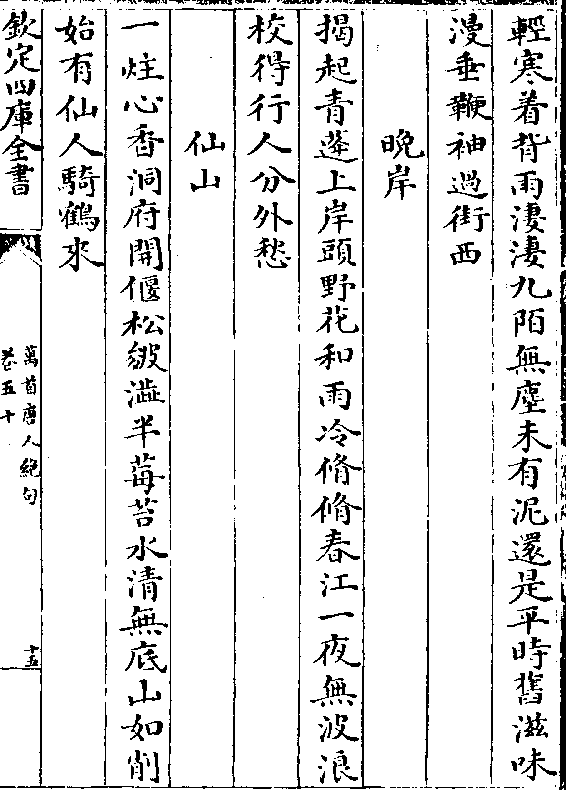 輕寒着背雨淒淒九陌無塵未有泥還是平時舊滋味
漫垂鞭袖過街西
晚岸
揭起青蓬上岸頭野花和雨冷脩脩春江一夜無波浪
校得行人分外愁
仙山
一炷心香洞府開偃松皴澁半莓苔水清無底山如削
始有仙人騎鶴來
欽定四庫全書
萬首唐人絕句
卷五十
十五